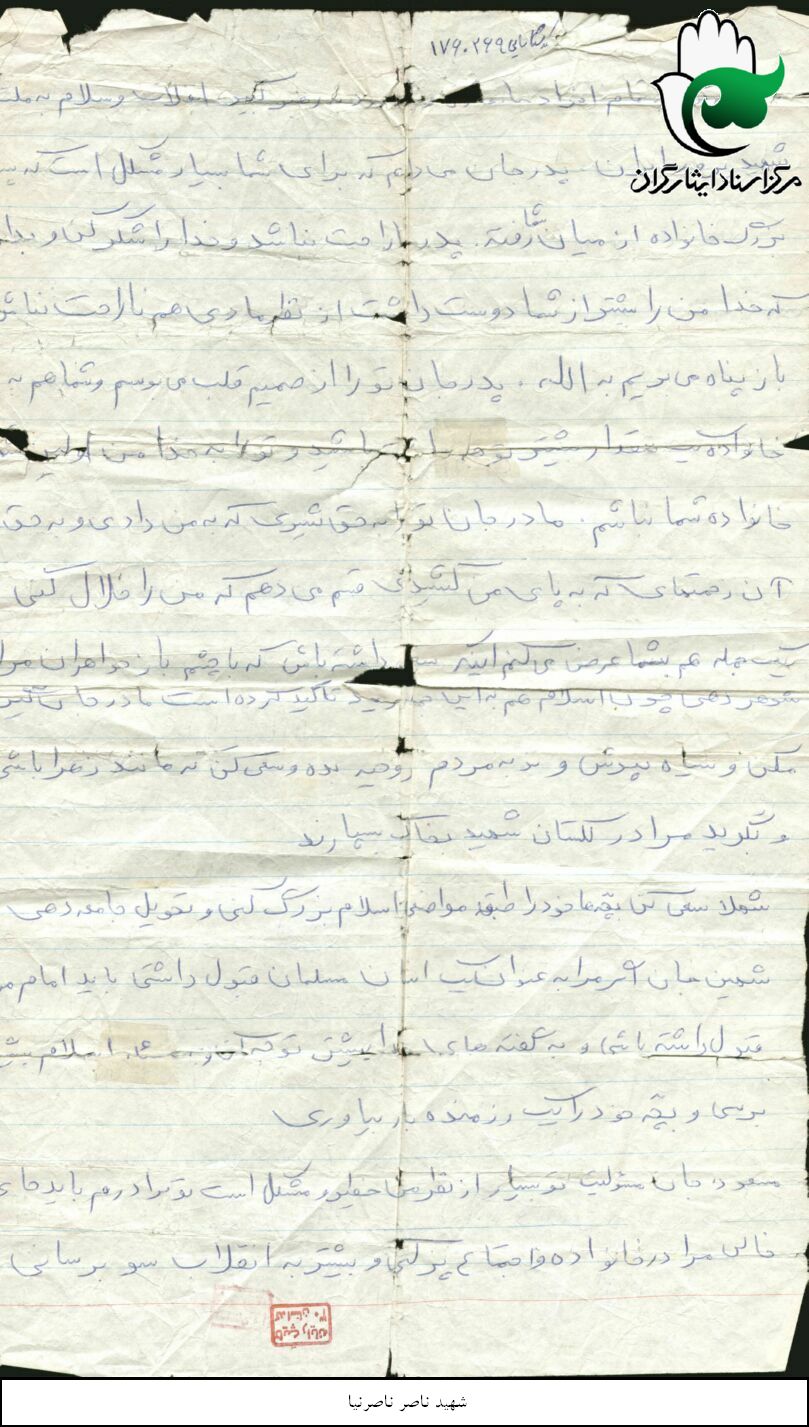 کد شناسایی ۱۷۶۰۲۶۹
مرکز اسناد ایثارگران
تمام افراد انقلاب و سلام به ملت
شهید پرور ایران. پدر جان می دانم که برای شما بسیار مشکل است که
بزرگ خانواده از میان شما رفته. پدر ناراحت نباشد و خدا را شکر کن و بدان
که خدا من را بیشتر از شما دوست داشت از نظر مادی هم ناراحت نباش
باز پناه می بریم به الله. پدر جان تو را از صمیم قلب می بوسم و شما هم به
خانواده یک مقدار بیشتر توجه داشته باشید و تو را به خدا من اولین
خانواده شما نباشم. مادر جان تو را به حق شیری که به من دادی و به حق
آن زحمتهای که به پای من کشیدی قسم می دهم که من را حلال کنی
یک جمله هم بشما عرض می کنم اینکه سعی داشته باش که با چشم باز خواهران مرا
شوهر دهی چون اسلام هم به این تاکید کرده است مادر جان گریه
مکن و سیاه نپوش و به مردم روحیه بده و سعی کن که مانند زهرا باشی
و بگوید مرا در گلستان شهید بخاک بسپارند
شهلا سعی کن بچه ها خود را طبق موازین اسلام بزرگ کنی و تحویل جامعه دهی
شهین جان اگر مرا به عنوان یک انسان مسلمان قبول داشتی باید امام
قبول داشته باشی و به گفته های بیشتر توجه اسلام
برسی و بچه خود را یک رزمنده بار بیاوری
مسعود جان مسئولیت تو بسیار از نظر من خطیر و مشکل است تو برادرم باید جای
خالی مرا در خانواده و اجتماع پر کنی و بیشتر به انقلاب سود برسانی
شهید ناصر ناصرنیا